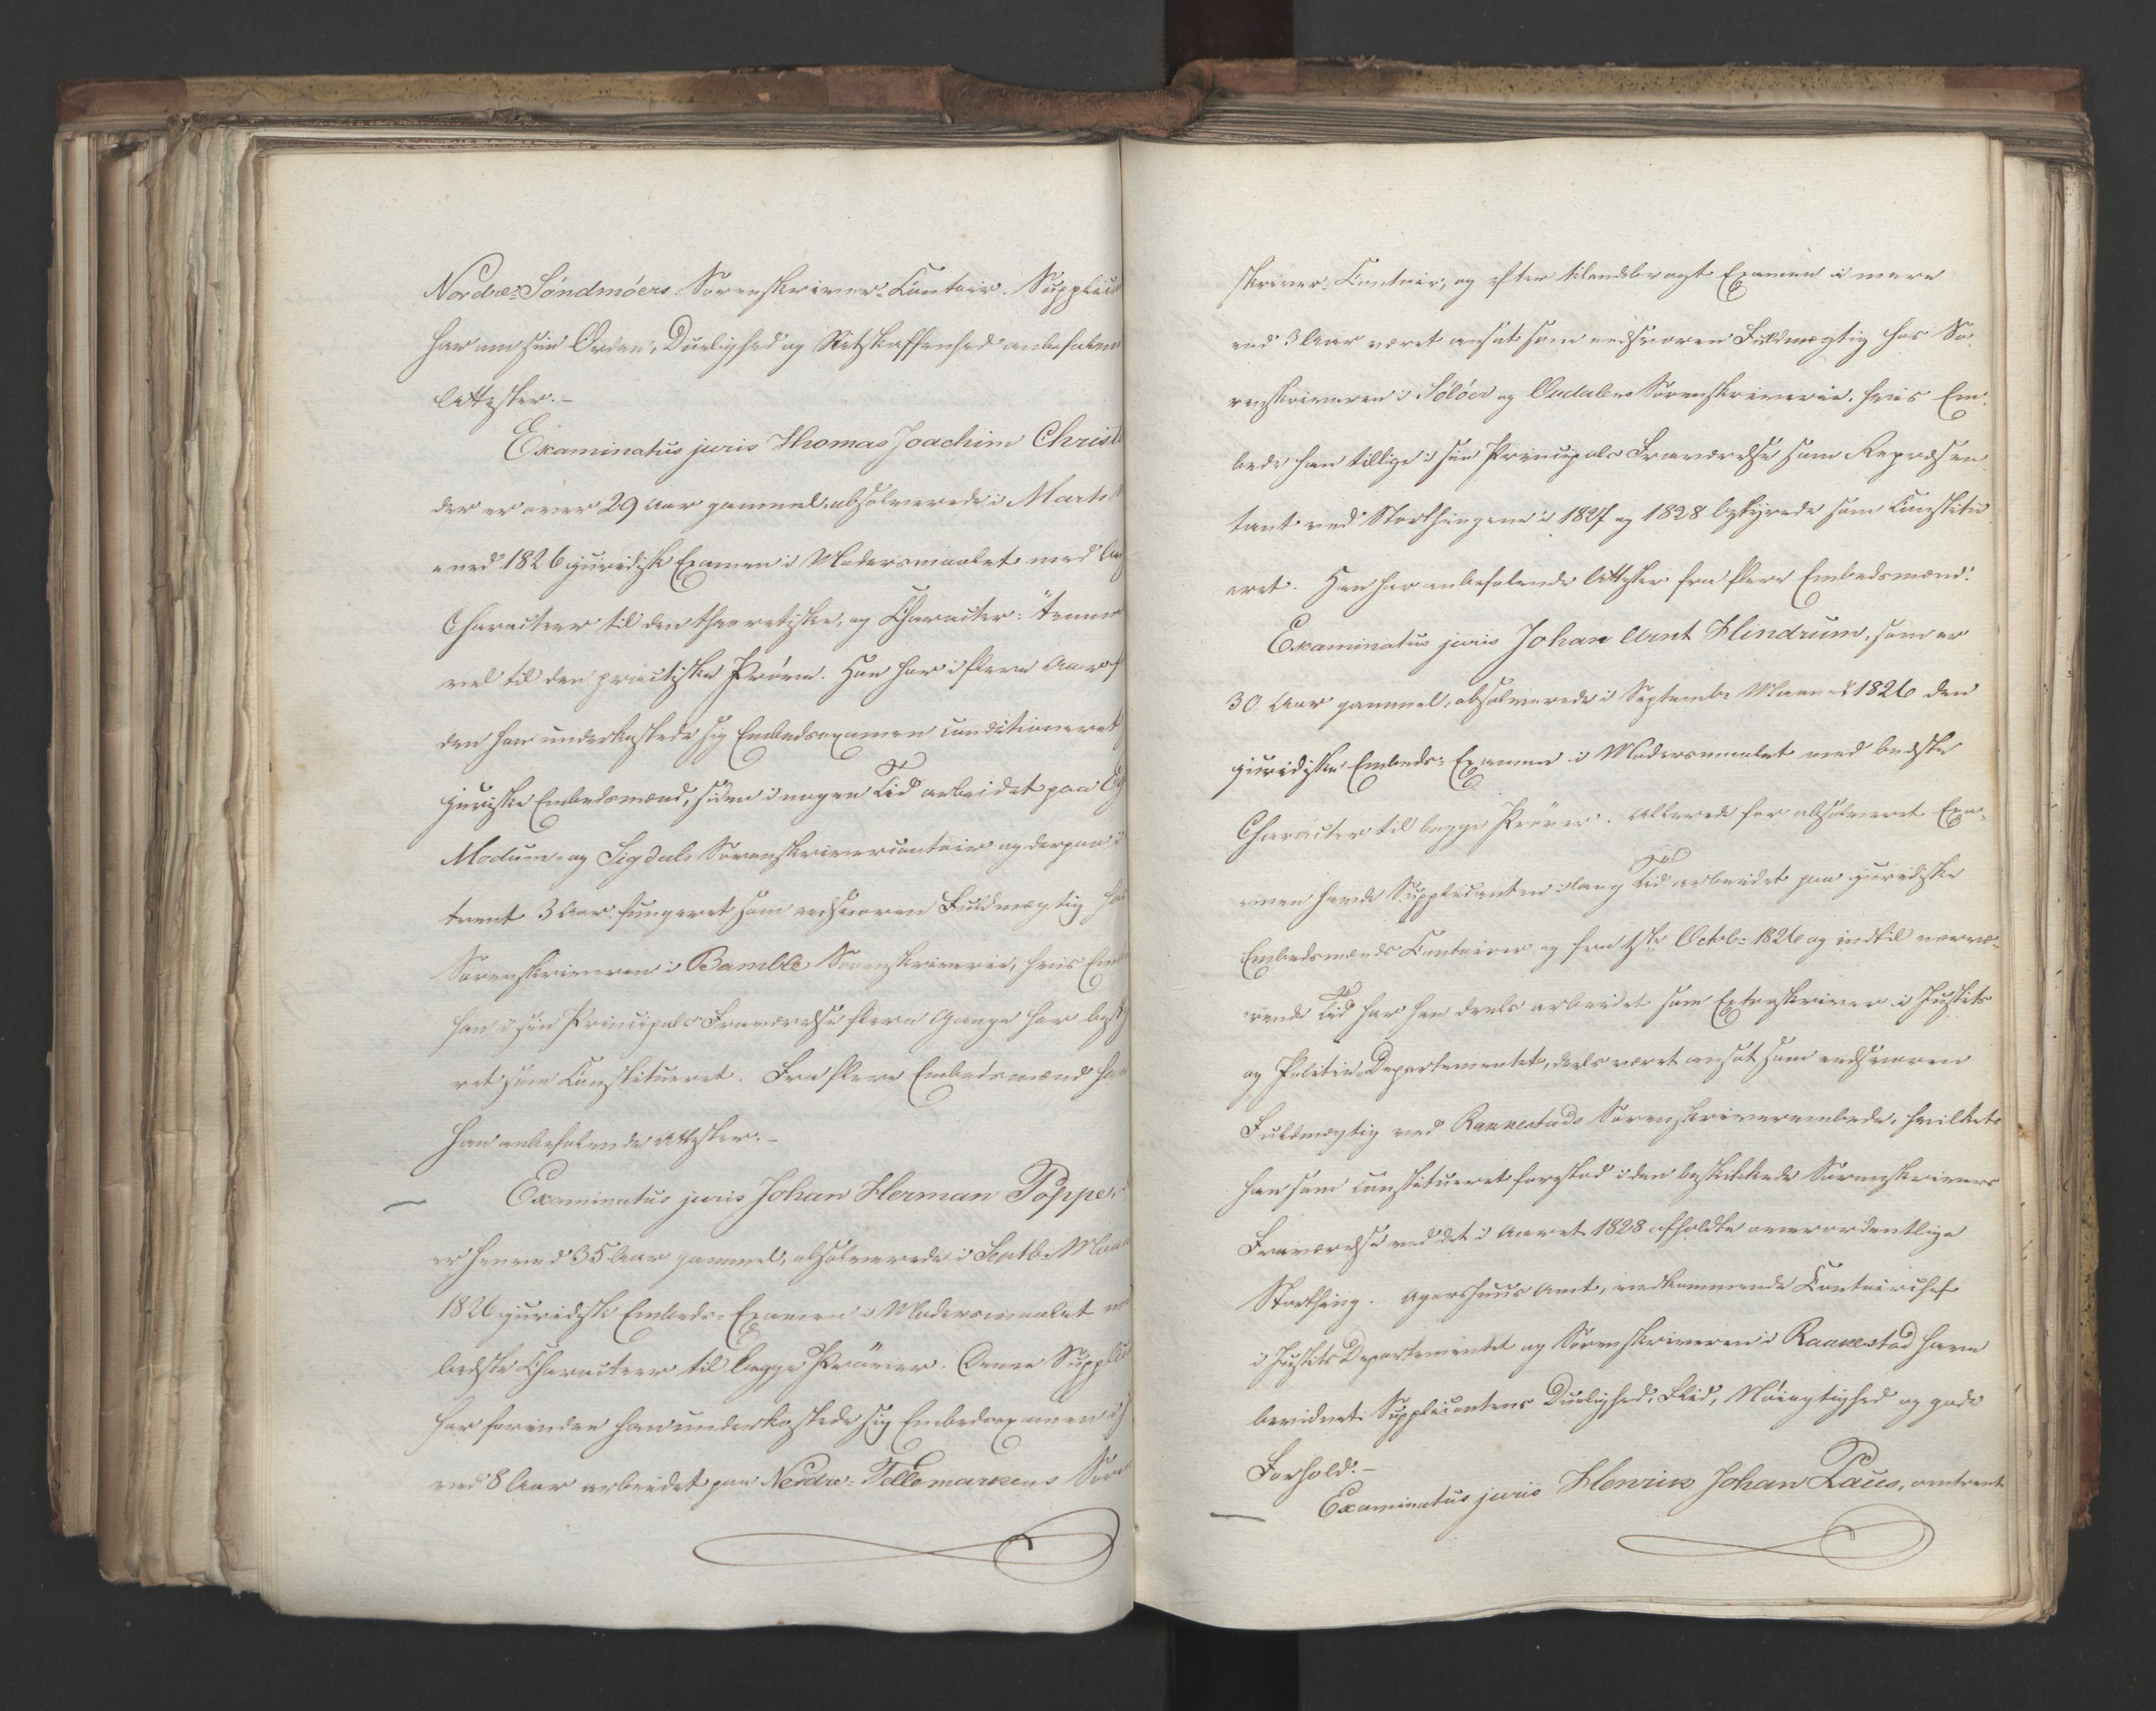 Nordre-Søndmøers Sorenskriver-Contoir. Supplica
har om sin Orden, Duelighed og Retskaffenhed anbefalende
Attester.-
Examinatus juris Thomas Joachim Christ
der er over 29 Aar gammel, absolverede i Marts
aned 1826 juridisk Examen i Modersmaalet med
Characteer til den theoretiske, og Character: "temme
vel til den practiske Prøve. Han har i flere Aar f
den han underkastede sig Embedsexamen conditioneret
juriske Embedsmænd, siden i nogen Tid arbeidet paa Eg
Modum- og Sigdals Sorenskrivercontoir og derpaa i
trent 3 Aar fungeret som eedsvoren Fuldmægtig ho
Sorenskriveren i Bamble Sorenskriverie, hvis Emb
han i sin Principals Fraværelse flere Gange har besty
ret som Constitueret. Fra flere Embedsmænd ha
han anbefalende Attester.-
Examinatus juris Johan Herman Poppe,
er henved 35 Aar gammel, absolverede i Septb. Maan
1826 juridisk Embeds-Examen i Modersmaalet m
bedste Characteer til begge Prøver. Denne Supplic
har forinden han underkastede sig Embedsexamen i
ved 8 Aar arbeidet paa Nordre-Tellemarkens Sor
skriver-Contoir, og efter tilendebragt Examen i mere
end 3 Aar været ansat som eedsvoren Fuldmægtig hos So-
renskriveren i Soløer og Oudalens Sorenskriverie, hvis Em-
bede han tillige i sin Principals Fraværelse som Repræsen-
tant ved Storthingene i 1827 og 1828 bestyrede som Constitu-
eret. Han har anbefalende Attester fra flere Embedsmænd.
Examinatus juris Johan Arnt Hindrum, som er
30 Aar gammel, absolverede i Septembr Maaned 1826 den
juridiske Embeds-Examen i Modersmaalet med bedste
Characteer til begge Prøver. Allerede før absolveret Exa-
men havde Supplicanten i lang Tid arbeidet paa juridiske
Embedsmænds Contoirer og fra 1ste Octobr 1826 og indtil nærvæ-
rende Tid har han deels arbeidet som Extraskriver i Justits
og Politie-Departementet, deels været ansat som eedsvoren
Fuldmægtig ved Rakkestads Sorenskriverembede, hvilket
han som constitueret forestod i den beskikkede Sorenskrivers
Fraværelse ved det i Aaret 1828 afholdte overordentlige
Storthing. Agershuus Amt, vedkommende Contoirchef
i Justits Departementet og Sorenskriveren i Rakkestad have
bevidnet Supplicantens Duelighed, Flid, Nøiagtighed og gode
Forhold.-
Examinatus juris Henrik Johan Paus, omtrent